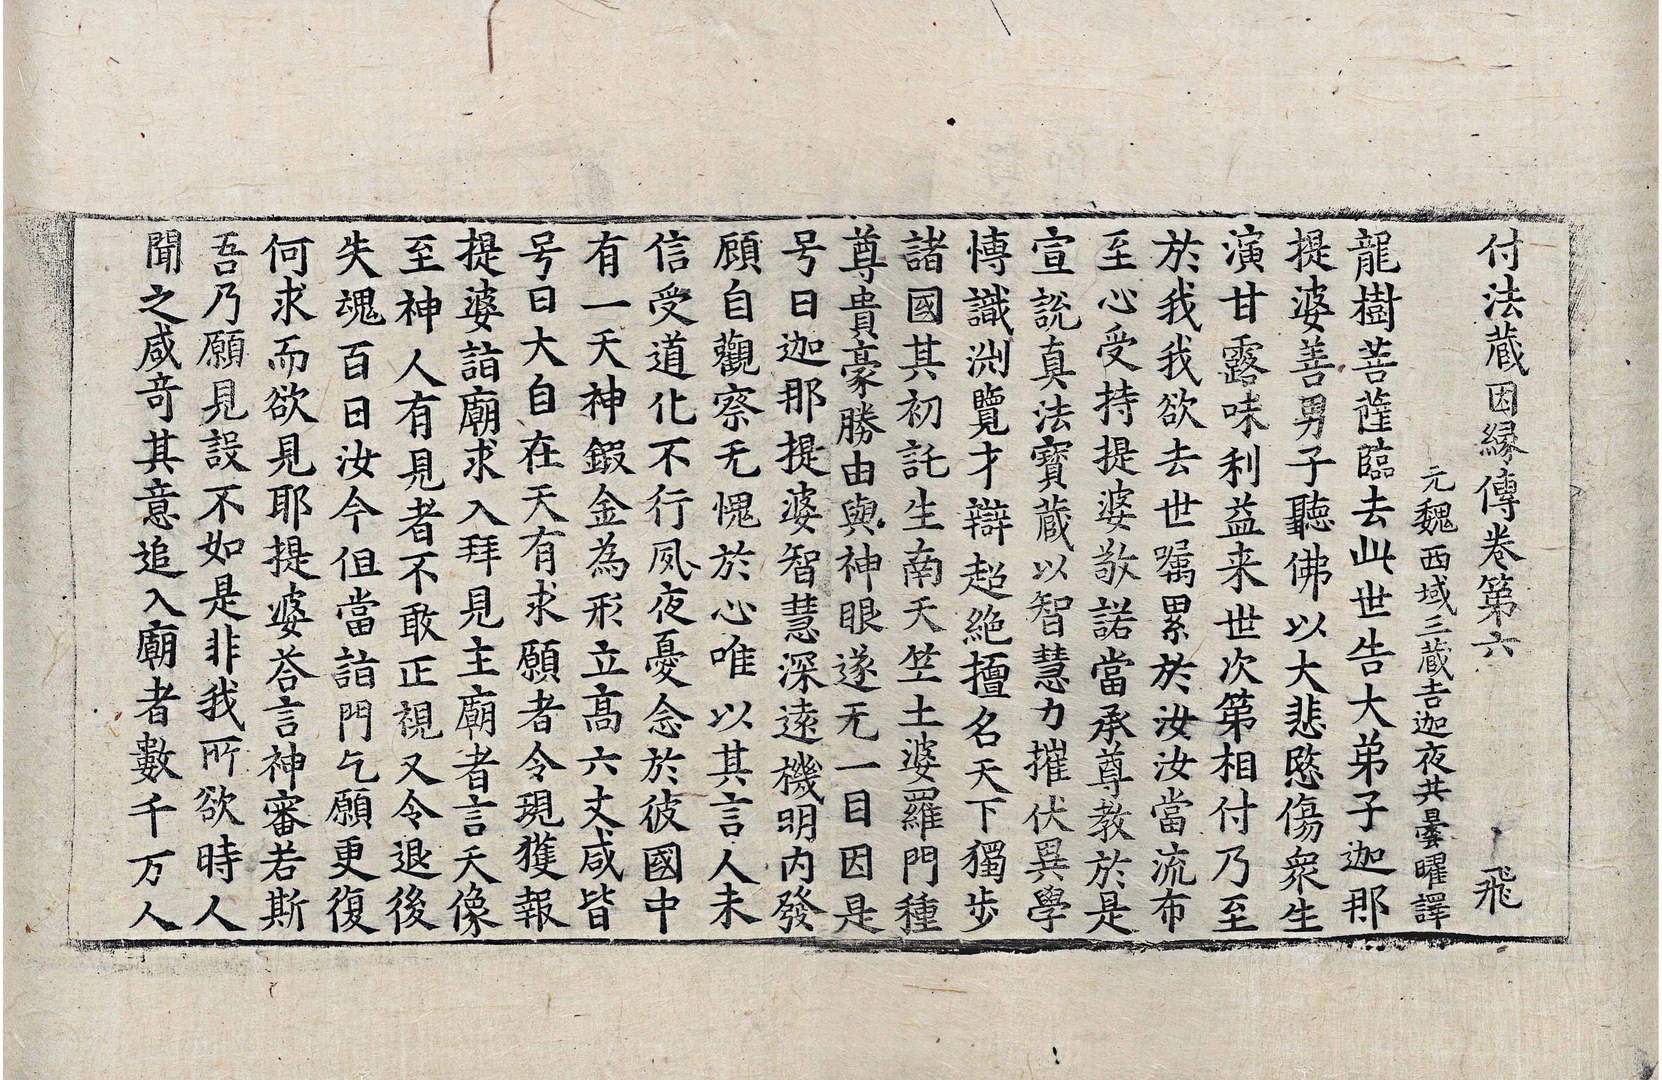 付法蔵因縁傳卷第六 飛
元魏西域三蔵吉迦夜共曇曜譯
龍樹菩薩臨去此世告大弟子迦那
提婆善男子聽佛以大悲愍傷衆生
演甘露味利益来世次第相付乃至
於我我欲去世嘱累於汝汝當流布
至心受持提婆敬諾當承尊教於是
宣說真法寶蔵以智慧力摧伏異學
愽識渕覽才辯超絶擅名天下獨步
諸國其初託生南天竺土婆羅門種
尊貴豪勝由與神眼遂无一目因是
号曰迦那提婆智慧深遠機明内發
顧自觀察无愧於心唯以其言人未
信受道化不行夙夜憂念於彼國中
有一天神鍜金為形立髙六丈咸皆
号曰大自在天有求願者令現獲報
提婆詣廟求入拜見主廟者言天像
至神人有見者不敢正視又令退後
失魂百日汝今但當詣門乞願更復
何求而欲見耶提婆荅言神審若斯
吾乃願見設不如是非我所欲時人
聞之咸奇其意追入廟者數千万人